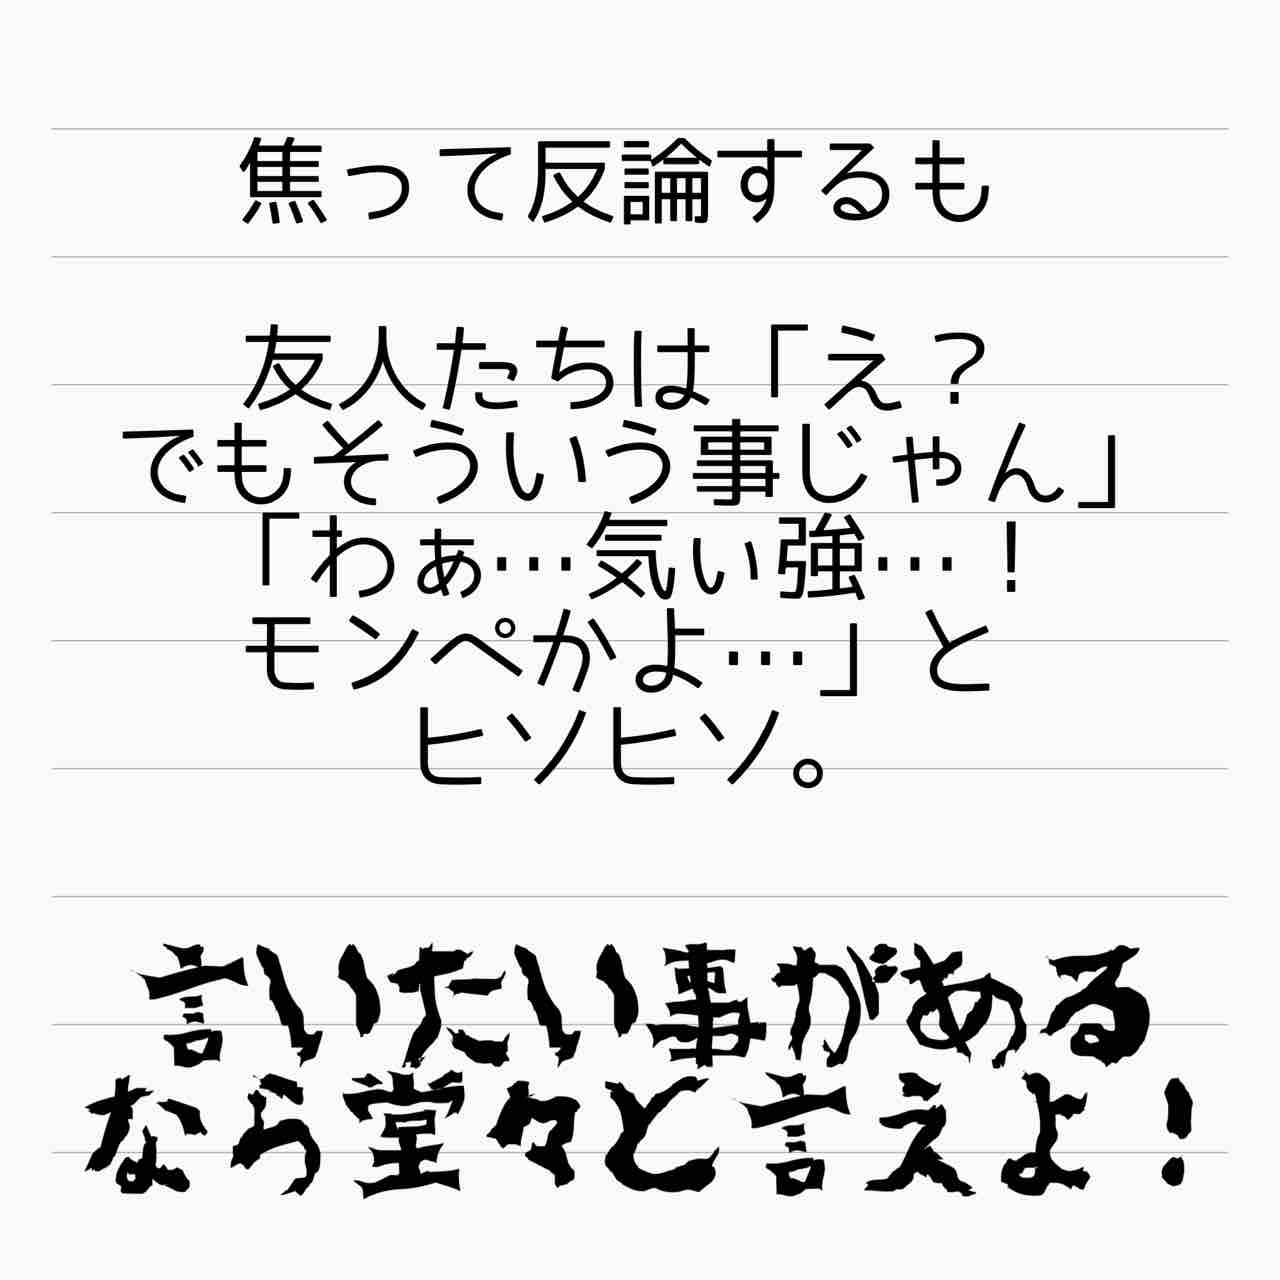 焦って反論するも
友人たちは「え？
でもそういう事じゃん」
「わぁ…気ぃ強…！
モンペかよ…」と
ヒソヒソ。
言いたい事がある
なら堂々と言えよ！